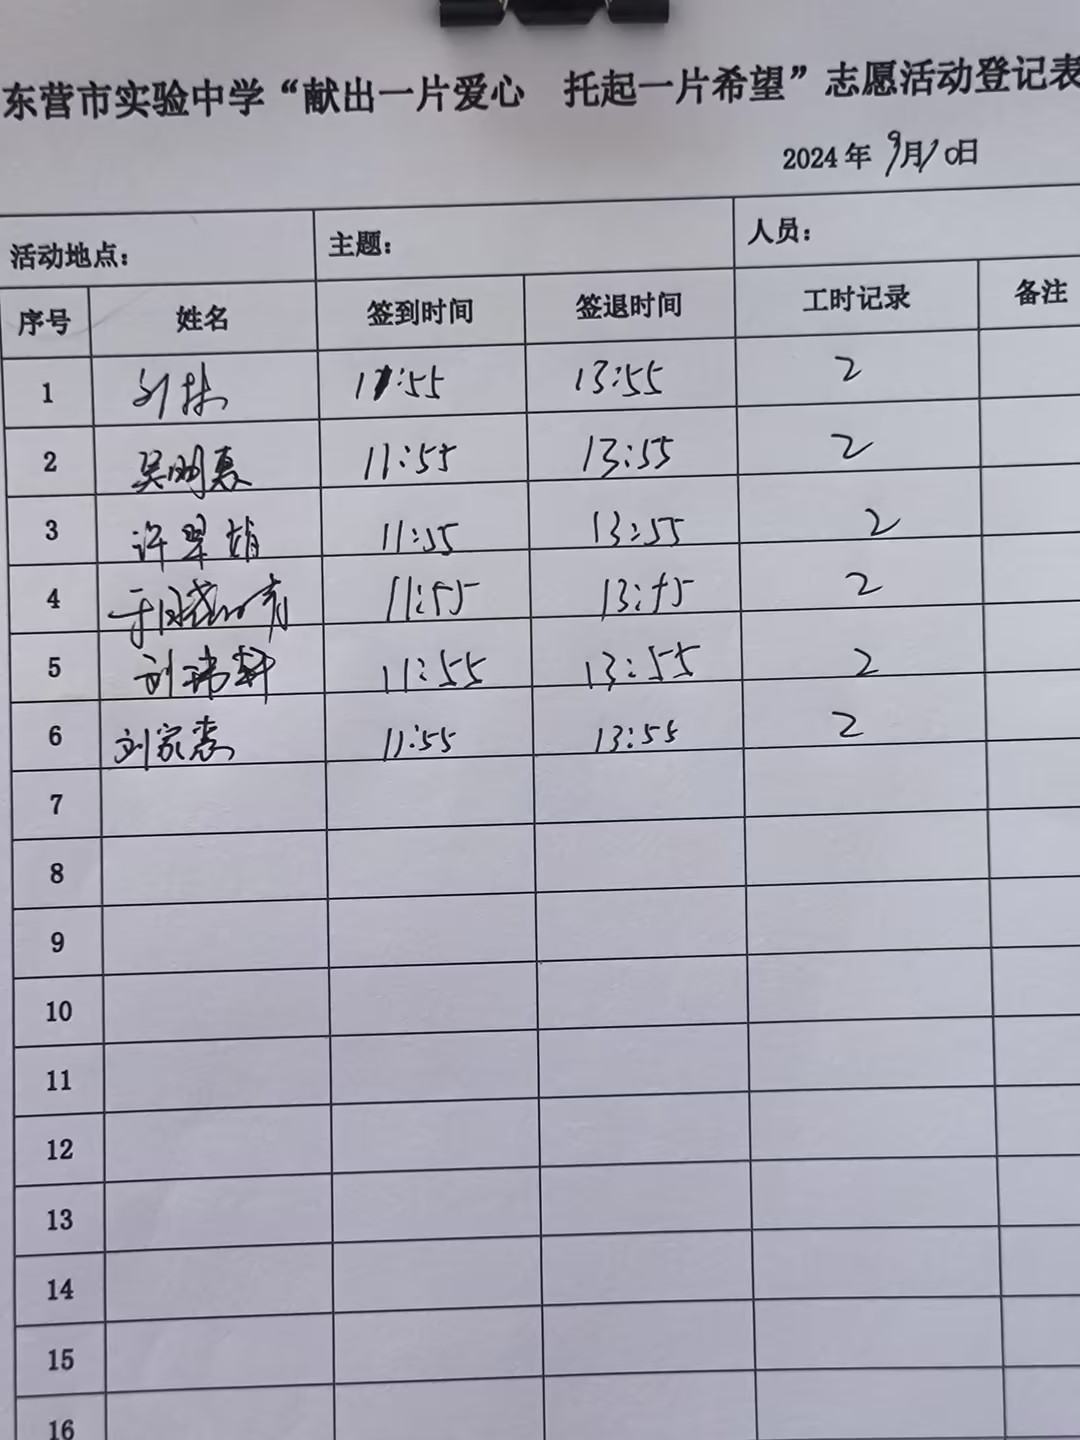 东营市实验中学“献出一片爱心 托起一片希望”志愿活动登记表
2024年9月10日
活动地点： 主题： 人员：
序号 姓名 签到时间 签退时间 工时记录 备注
1 刘林 11:55 13:55 2
2 吴明惠 11:55 13:55 2
3 许翠娟 11:55 13:55 2
4 11:55 13:55 2
5 刘玮轩 11:55 13:55 2
6 刘家惠 11:55 13:55 2
7
8
9
10
11
12
13
14
15
16